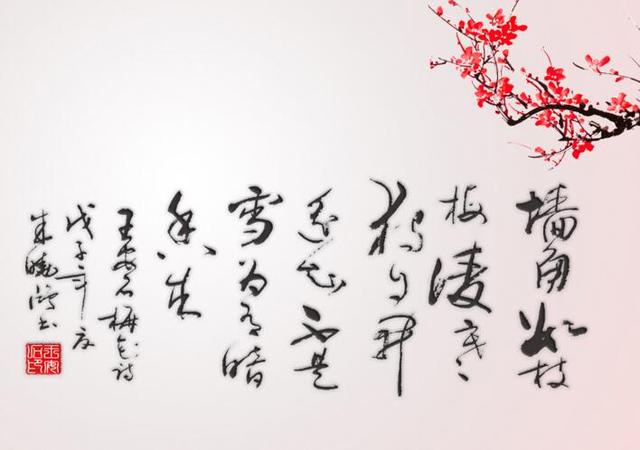 墙角数枝
梅凌寒
独自开
遥知不是
雪为有暗
香来
王安石梅花诗
戊子年夏
朱晓书